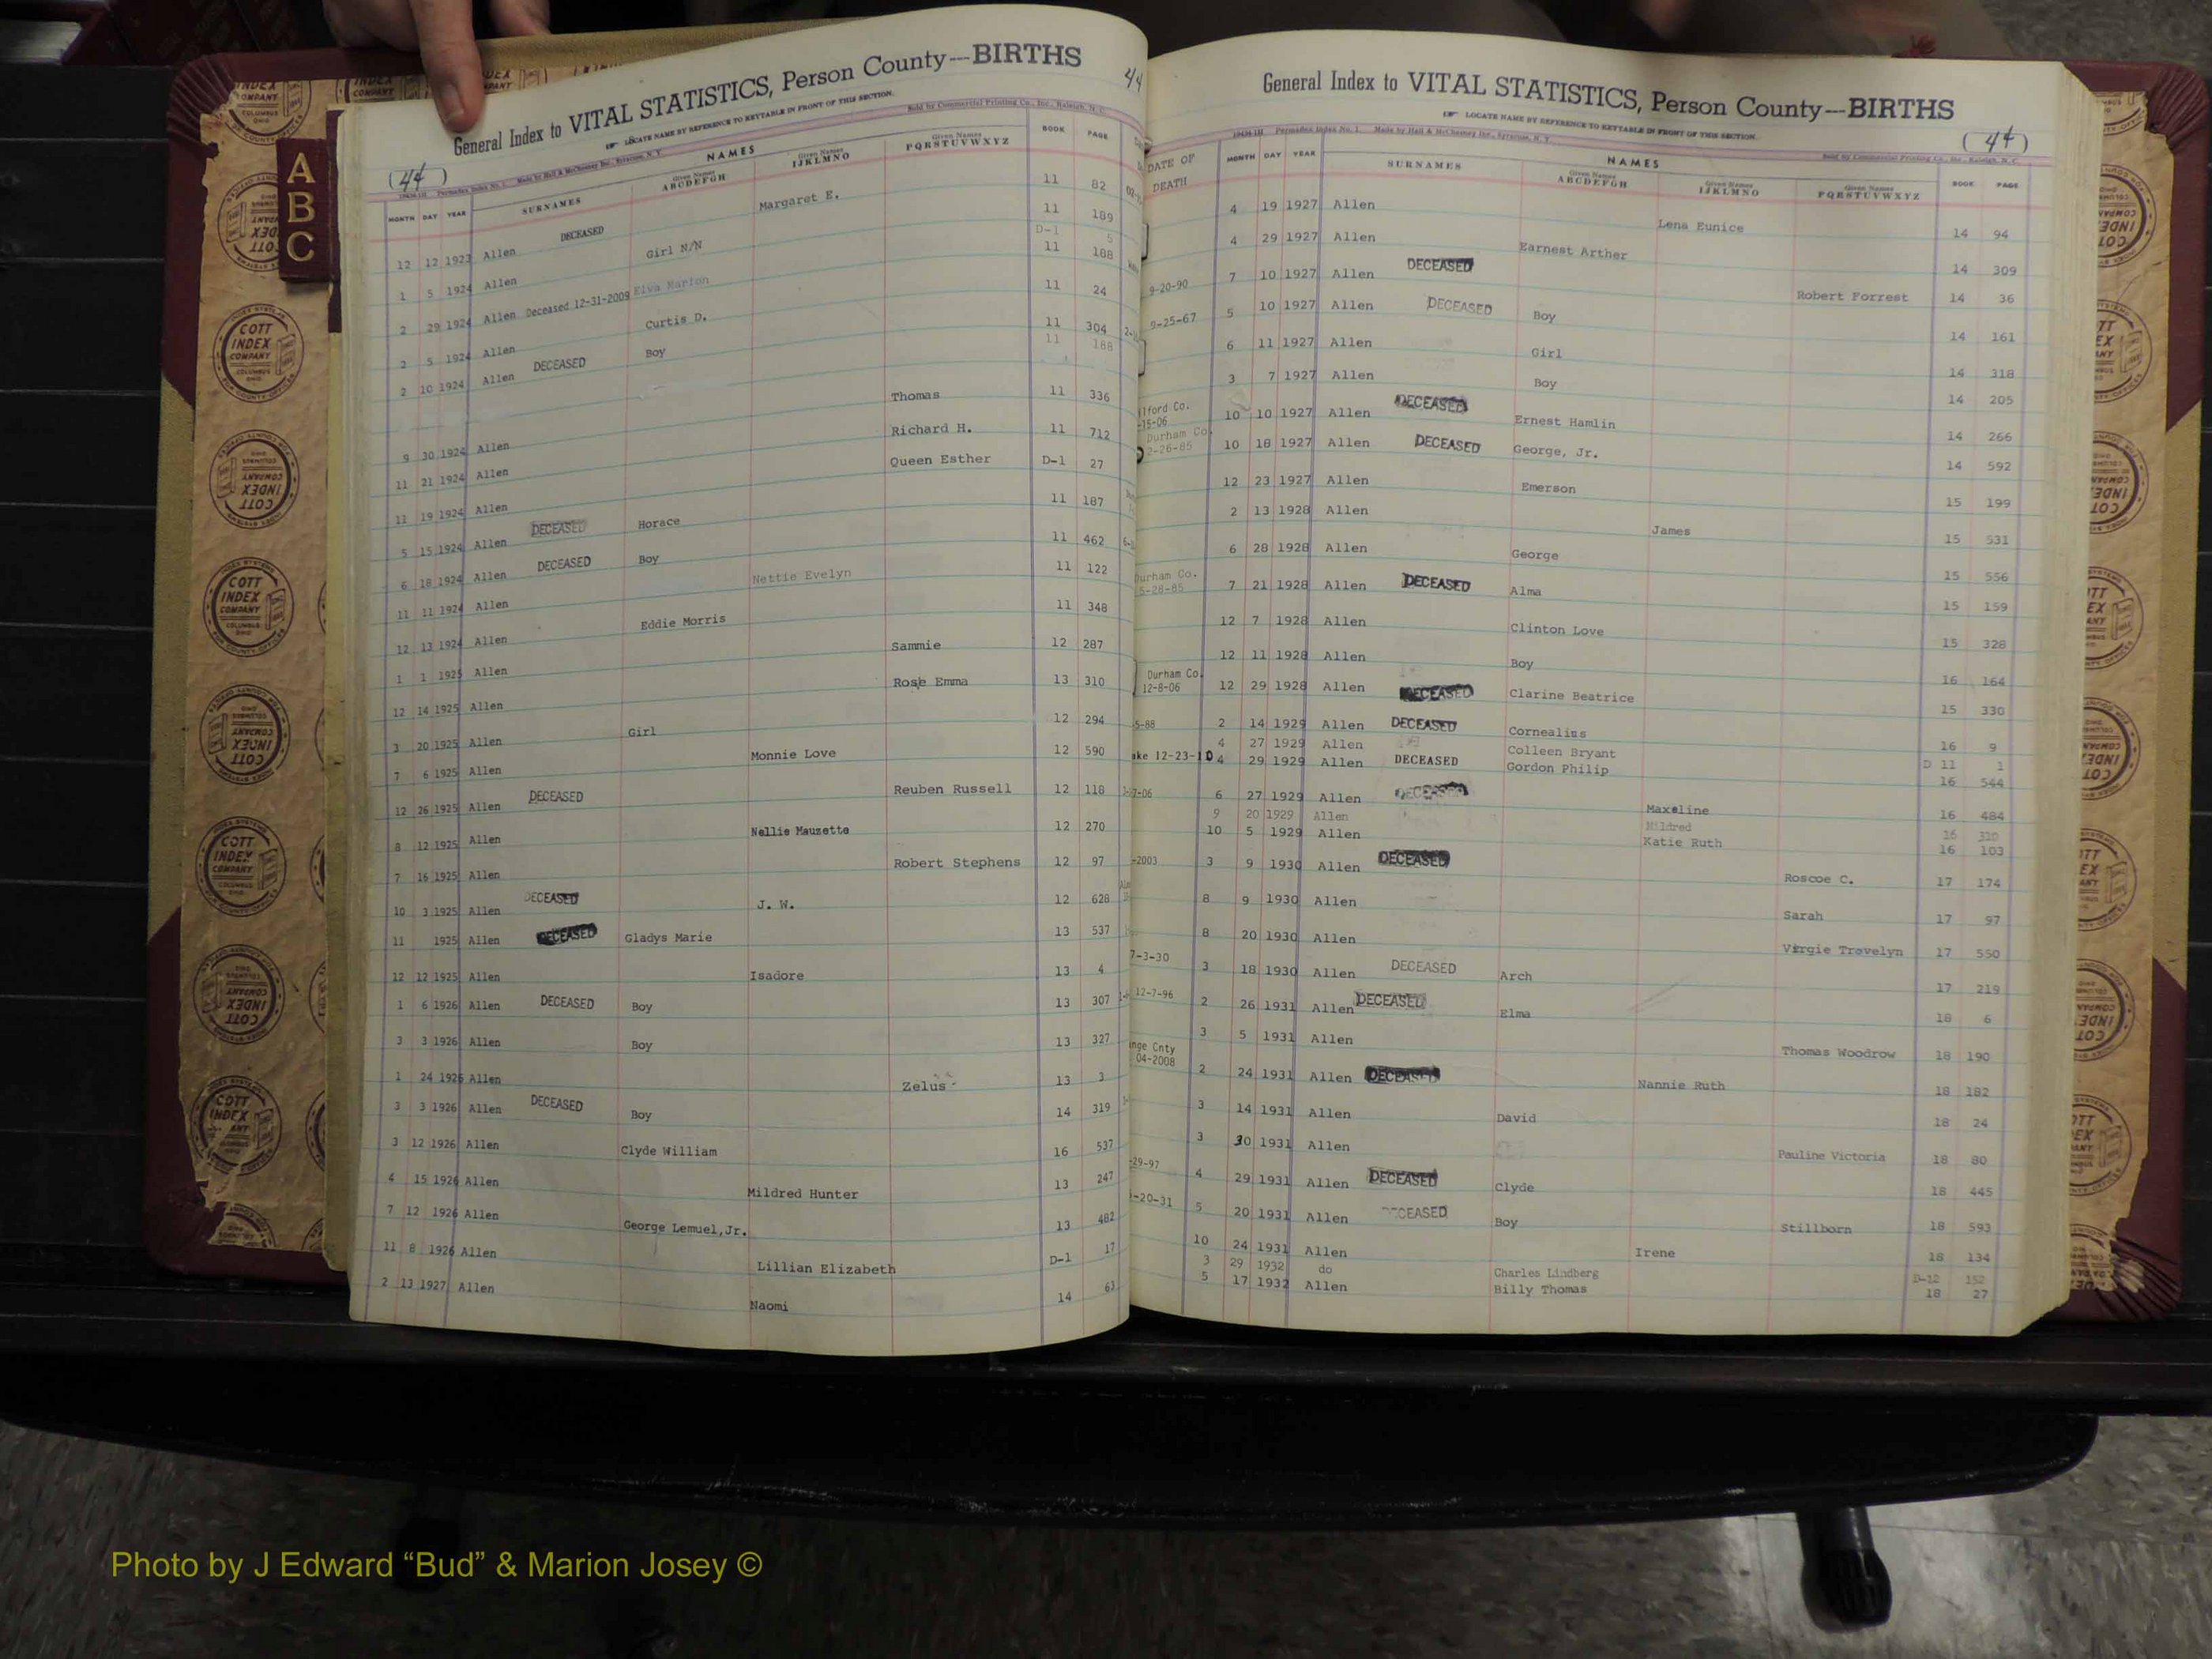 General Index to VITAL STATISTICS, Person County—BIRTHS
44
LOCATE NAME BY REFERENCE TO KEYTABLE IN FRONT OF THIS SECTION.
(44) Made by Hall & McChesney Inc., Syracuse, N. Y. Sold by Commercial Printing Co., Inc., Raleigh, N. C.
NAMES
MONTH DAY YEAR SURNAMES Given Names ABCDEFGH Given Names IJKLMNO Given Names PQRSTUVWXYZ BOOK PAGE
12 12 1923 Allen DECEASED Margaret E. 11 82
1 5 1924 Allen Girl N/N 11 189
2 29 1924 Allen Deceased 12-31-2009 Elva Marion D-1 5
2 5 1924 Allen Curtis D. 11 188
2 10 1924 Allen DECEASED Boy 11 24
11 304
11 188
9 30 1924 Allen Thomas 11 336
11 21 1924 Allen Richard H. 11 712
11 19 1924 Allen Queen Esther D-1 27
5 15 1924 Allen DECEASED Horace 11 187
6 18 1924 Allen DECEASED Boy 11 462
11 11 1924 Allen Nettie Evelyn 11 122
12 13 1924 Allen Eddie Morris 11 348
1 1 1925 Allen Sammie 12 287
12 14 1925 Allen Rose Emma 13 310
3 20 1925 Allen Girl 12 294
7 6 1925 Allen Monnie Love 12 590
12 26 1925 Allen DECEASED Reuben Russell 12 118
8 12 1925 Allen Nellie Mauzette 12 270
7 16 1925 Allen Robert Stephens 12 97
10 3 1925 Allen DECEASED J. W. 12 628
11 1925 Allen DECEASED Gladys Marie 13 537
12 12 1925 Allen Isadore 13 4
1 6 1926 Allen DECEASED Boy 13 307
3 3 1926 Allen Boy 13 327
1 24 1926 Allen Zelus 13 3
3 3 1926 Allen DECEASED Boy 14 319
3 12 1926 Allen Clyde William 16 537
4 15 1926 Allen Mildred Hunter 13 247
7 12 1926 Allen George Lemuel, Jr. 13 482
11 8 1926 Allen Lillian Elizabeth D-1 17
2 13 1927 Allen Naomi 14 63
A
B
C
General Index to VITAL STATISTICS, Person County—BIRTHS
LOCATE NAME BY REFERENCE TO KEYTABLE IN FRONT OF THIS SECTION.
(44)
Made by Hall & McChesney Inc., Syracuse, N. Y. Sold by Commercial Printing Co., Inc., Raleigh, N. C.
NAMES
DATE OF DEATH MONTH DAY YEAR SURNAMES Given Names ABCDEFGH Given Names IJKLMNO Given Names PQRSTUVWXYZ BOOK PAGE
4 19 1927 Allen Lena Eunice 14 94
4 29 1927 Allen Earnest Arther 14 309
9-20-90 7 10 1927 Allen DECEASED Robert Forrest 14 36
9-25-67 5 10 1927 Allen DECEASED Boy 14 161
6 11 1927 Allen Girl 14 318
3 7 1927 Allen Boy 14 205
10 10 1927 Allen DECEASED Ernest Hamlin 14 266
Durham Co. 2-26-85 10 18 1927 Allen DECEASED George, Jr. 14 592
12 23 1927 Allen Emerson 15 199
2 13 1928 Allen James 15 531
6 28 1928 Allen George 15 556
Durham Co. 5-28-85 7 21 1928 Allen DECEASED Alma 15 159
12 7 1928 Allen Clinton Love 15 328
12 11 1928 Allen Boy 16 164
Durham Co. 12-8-06 12 29 1928 Allen DECEASED Clarine Beatrice 15 330
5-88 2 14 1929 Allen DECEASED Cornealiss 16 9
4 27 1929 Allen Colleen Bryant D 11 1
ake 12-23-10 4 29 1929 Allen DECEASED Gordon Philip 16 544
7-06 6 27 1929 Allen DECEASED Maxeline 16 484
9 20 1929 Allen Mildred 16 320
10 5 1929 Allen Katie Ruth 16 103
-2003 3 9 1930 Allen DECEASED Roscoe C. 17 174
8 9 1930 Allen Sarah 17 97
8 20 1930 Allen Virgie Travelyn 17 550
7-3-30 3 18 1930 Allen DECEASED Arch 17 219
12-7-96 2 26 1931 Allen DECEASED Elma 18 6
3 5 1931 Allen Thomas Woodrow 18 190
nge Cnty 04-2008 2 24 1931 Allen DECEASED Nannie Ruth 18 182
3 14 1931 Allen David 18 24
3 30 1931 Allen Pauline Victoria 18 80
-29-97 4 29 1931 Allen DECEASED Clyde 18 445
-20-31 5 20 1931 Allen DECEASED Boy Stillborn 18 593
10 24 1931 Allen Irene 18 134
3 29 1932 do Charles Lindberg D-12 152
5 17 1932 Allen Billy Thomas 18 27
COTT INDEX COMPANY COLUMBUS OHIO
Photo by J Edward “Bud” & Marion Josey ©